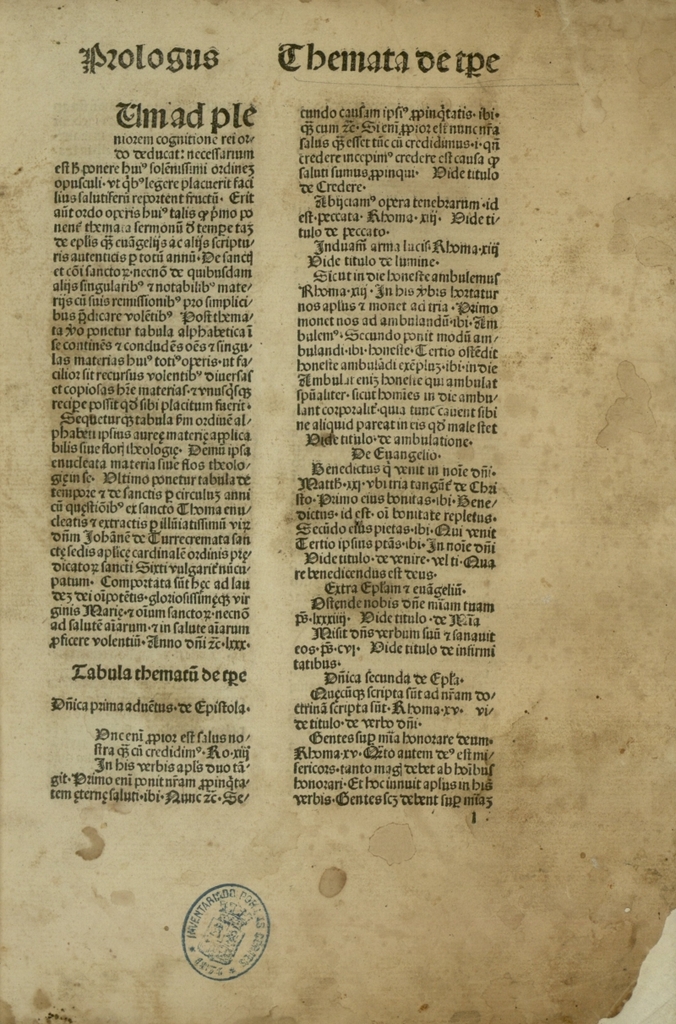 Prologus
Themata de tꝑe
Um ad ple
niorem cognitionē rei or/
do deducat: necessarium
est ꝧ ponere huiꝰ solēnissimi ordinez
opusculi · vt qͥbꝰ legere placuerit faci
lius salutiferū reportent fructū · Erit
aūt ordo operis huiꝰ talis ꝙ pͥmo po
nenͭ themata sermonū ꝺ̄ tempe taꝫ
de eplis qꝫ euāgelijs ac alijs scriptu/
ris autenticis ꝑ totū annū · De sanctꝭ
et cōi sanctoꝝ · necnō de quibusdam
alijs singularibꝰ ⁊ notabilibꝰ mate/
rijs cū suis remissionibꝰ pro simplici/
bus p̄dicare volētibꝰ Post thema/
ta v̓o ponetur tabula alphabetica ī
se continēs ⁊ concludēs oēs ⁊ singu/
las materias huiꝰ totiꝰ operis · vt fa/
cilior sit recursus volentibꝰ diuersas
et copiosas hr̄e materias · ⁊ vnusqͥsqꝫ
recipe possit qd̓ sibi placitum fuerit ·
Sequeturqꝫ tabula fm ordinē al/
phabeti ipsius auree materię applica
bilis siue florꝭ theologie · Demū ipsa
enucleata materia siue flos theolo/
gie in se · Vltimo ponetur tabula de
tempore ⁊ de sanctis ꝑ circuluꝫ anni
cū questiōibꝰ ex sancto Thoma enu/
cleatis ⁊ extractis ꝑ illuiatissimū viꝝ
dn̄m Johānē de Turrecremata san
ctę sedis aplice cardinalē ordinis pre/
dicatoꝝ sancti Sixti vulgarit̓ nūcu/
patum · Comportata sūt hec ad lau
deꝫ dei oīpotētis · gloriosissimęqꝫ vir
ginis Marie · ⁊ oīum sanctoꝝ · necnō
ad salutē aīarum · ⁊ in salutē aīarum
ꝓficere volentiū · Anno dn̄i ⁊c · lxxx ·
Tabula thematū de tꝑe
Dn̄ica prima aduētus · de Epistola ·
Vnc enī ꝓpior est salus no/
stra qꝫ cū credidimꝰ · Ro · xiij
In his verbis apl̓s duo tā/
git · Primo enī ponit nr̄am ꝓpinqͥta/
tem eterne saluti · ibi · Nunc ⁊c · Se/
cundo causam ipsiꝰ ꝓpinqͥtatis · ibi ·
qꝫ cum ⁊c · Si enī ꝓpior est nunc nr̄a
salus qꝫ esset tūc cū credidimus · i · qn̄
credere incepimꝰ credere est causa ꝙ
saluti sumus ꝓpinqui · Vide titulo
de Credere ·
Abijciamꝰ opera tenebrarum · id
est · peccata · Rhoma · xiij · Vide ti/
tulo de peccato ·
Induam̄ arma lucis · Rhoma · xiij
Vide titulo de lumine ·
Sicut in die honeste ambulemus
Rhoma · xiij · In his v̓bis hortatur
nos apl̓us ⁊ monet ad tria · Primo
monet nos ad ambulandū · ibi · Am
bulemꝰ · Secundo ponit modū am/
bulandi · ibi · honeste · Tertio ostēdit
honeste ambulādi exēpluꝫ · ibi · in die
Ambulat eniꝫ honeste qui ambulat
spūaliter · sicut homīes in die ambu/
lant corporalit̓ · quia tunc cauent sibi
ne aliquid pareat in eis qd̓ male stet
Vide titulo · de ambulatione ·
De Euangelio ·
Benedictus qͥ venit in noīe dn̄i ·
Matth · xxj · vbi tria tangūt̓ de Chri
sto · Primo eius bonitas · ibi · Bene/
dictus · id est · oī bonitate repletus ·
Secūdo eius pietas · ibi · Qui venit
Tertio ipsius ptās · ibi · In noīe dn̄i
Vide titulo · de venire · vel ti · Qua
re benedicendus est deus ·
Extra Epl̓am ⁊ euāgeliū ·
Ostende nobis dn̄e mīam tuam
pͣs · lxxxiiij · Vide titulo · de Mīa
Misit dn̄s verbum suū ⁊ sanauit
eos · pͣs · cvj · Vide titulo de infirmi
tatibus ·
Dn̄ica secunda de Epl̓a ·
Quęcūqꝫ scripta sūt ad nr̄am do/
ctrinā scripta sūt · Rhoma · xv · vi/
de titulo · de verbo dn̄i ·
Gentes suꝑ mīa honorare deum ·
Rhoma · xv · Qn̄to autem deꝰ est mi/
sericors · tanto magꝭ debet ab hoībus
honorari · Et hoc innuit apl̓us in his
verbis · Gentes scꝫ debent suꝑ mīaꝫ
1
INVENTARIADO POR LAS CORTES